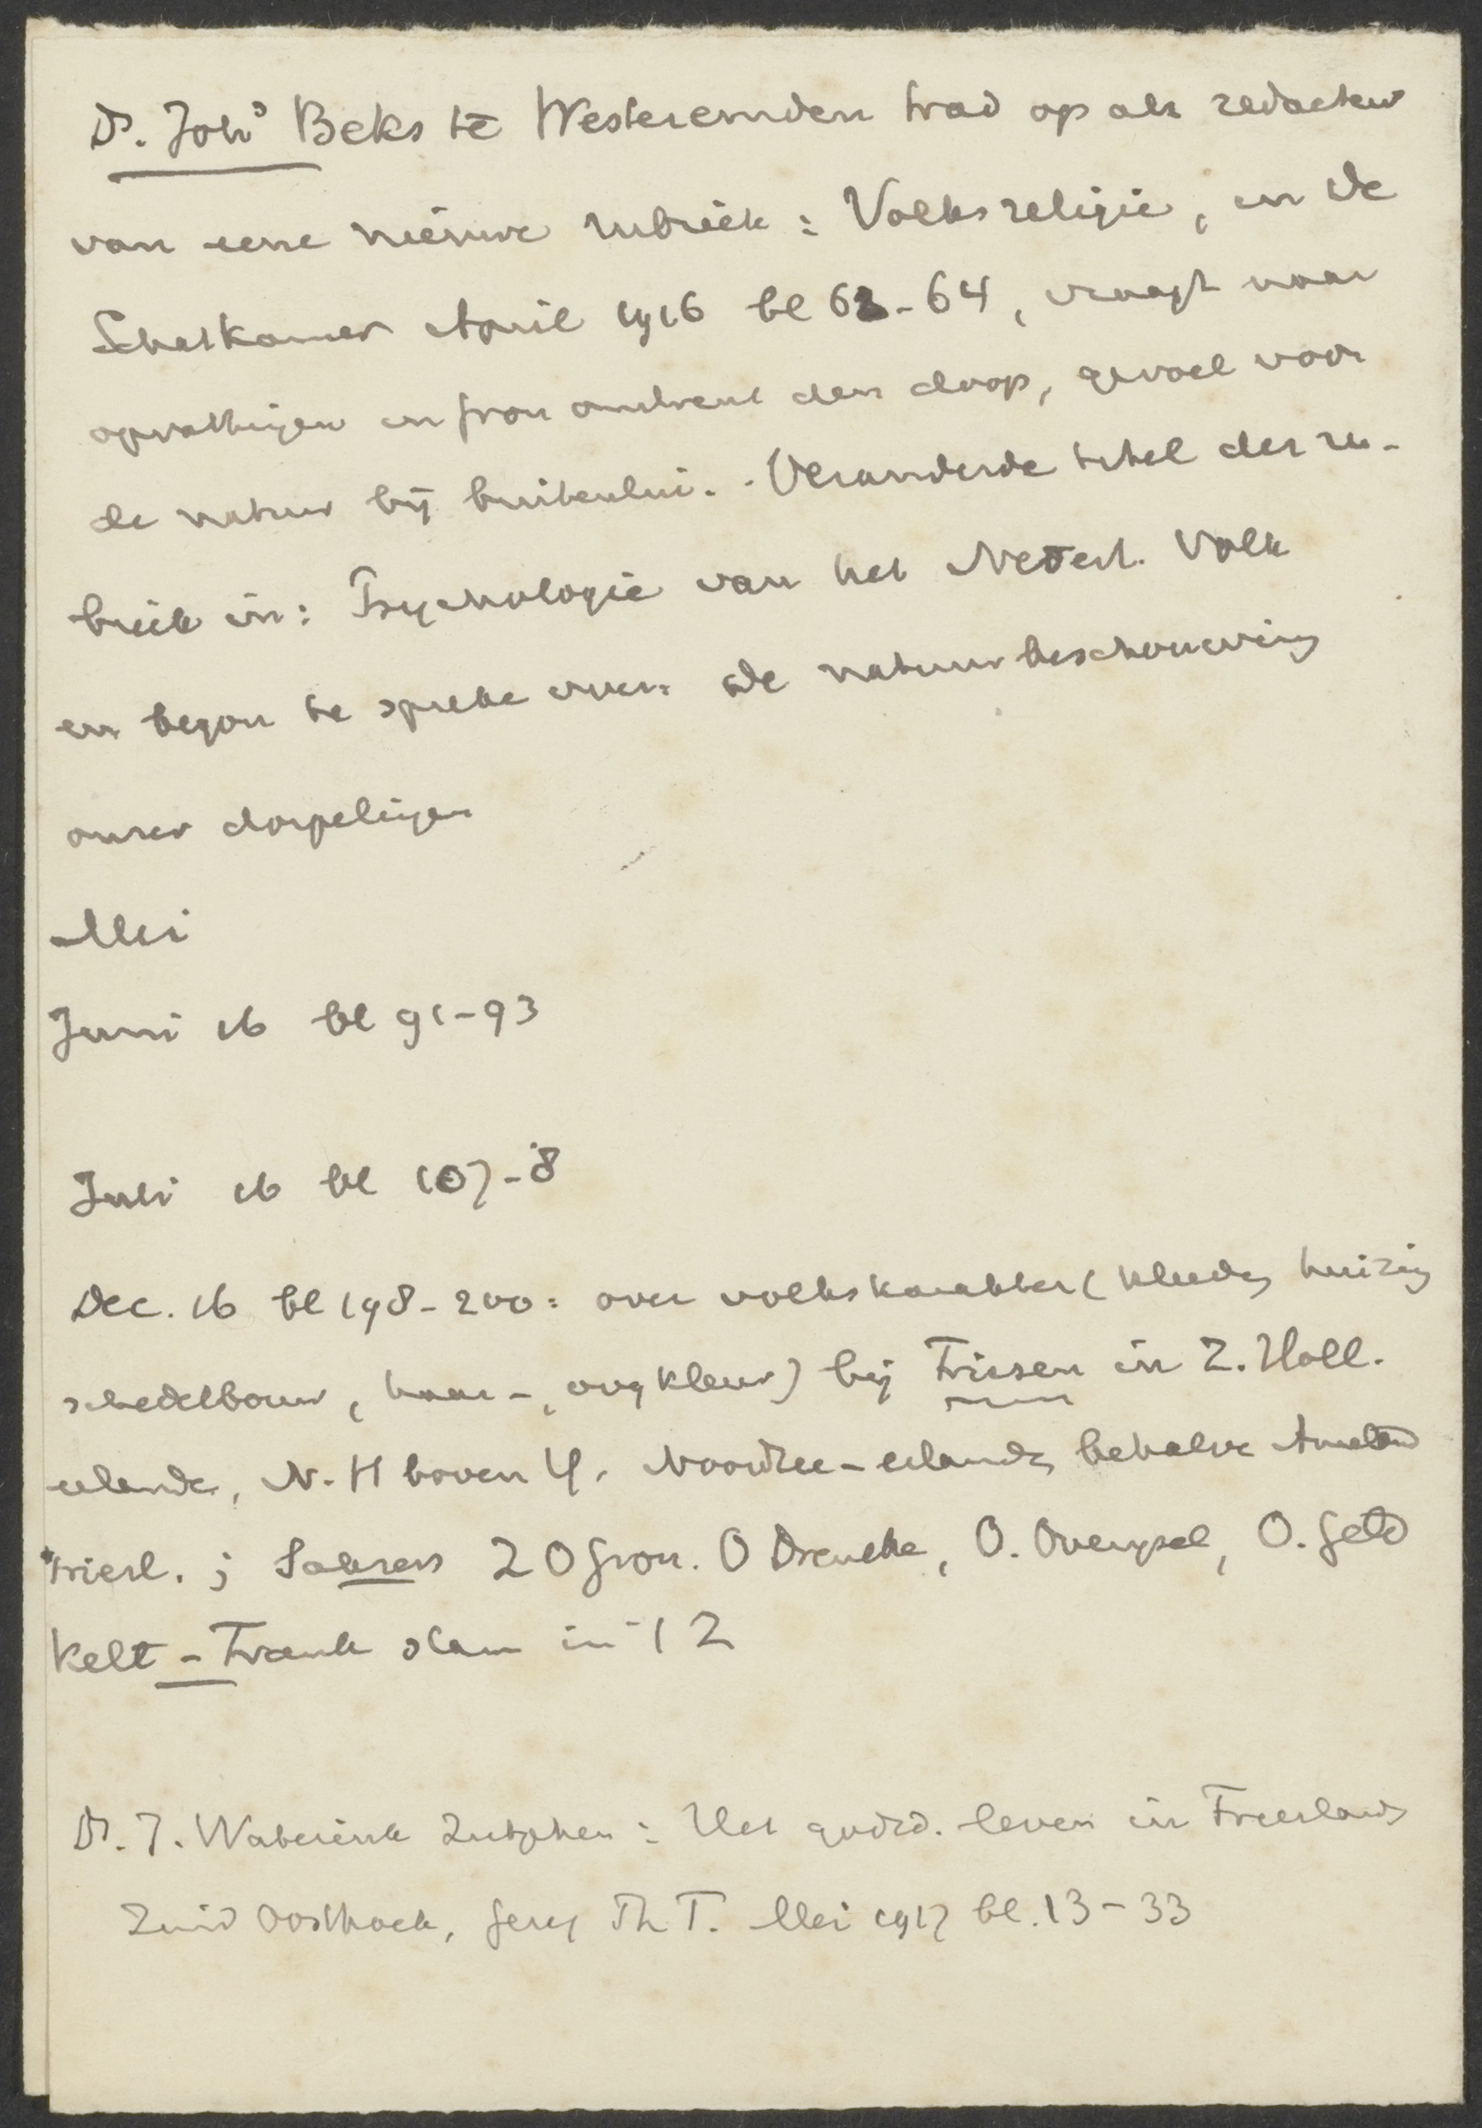 Ds. Johs Beks te Westeremden trad op als redacteur
van eene nieuwe rubriek: Volksreligie, in De
Schatkamer April 1916 bl 63-64, vraagt naar
opvattingen in Gron omtrent den doop, gevoel voor
de natuur bij buitenlui. Veranderde titel der ru-
briek in: Psychologie van het Nederl. Volk
en begon te spreke over: De natuurbeschouwing
onzer dorpelingen
Mei
Juni 16 bl 91-93
Juli 16 bl 107-8
Dec. 16 bl 198-200: over volkskarakter (kleeding huizing
schedelbouw, haar-, oogkleur) bij Friesen in Z. Holl.
eilande, N-H boven Y, Noordzee-eilande behalve Ameland
Friesl.; Sakser Z O Gron. O Drenthe, O. Overijsel, O. Geld
Kelt-Frank stam in 't Z
Ds. J. Waterink Zutphen: Het godsd. leven in Frieslands
Zuid Oosthoek, Geref Th T. Mei 1917 bl. 13-33